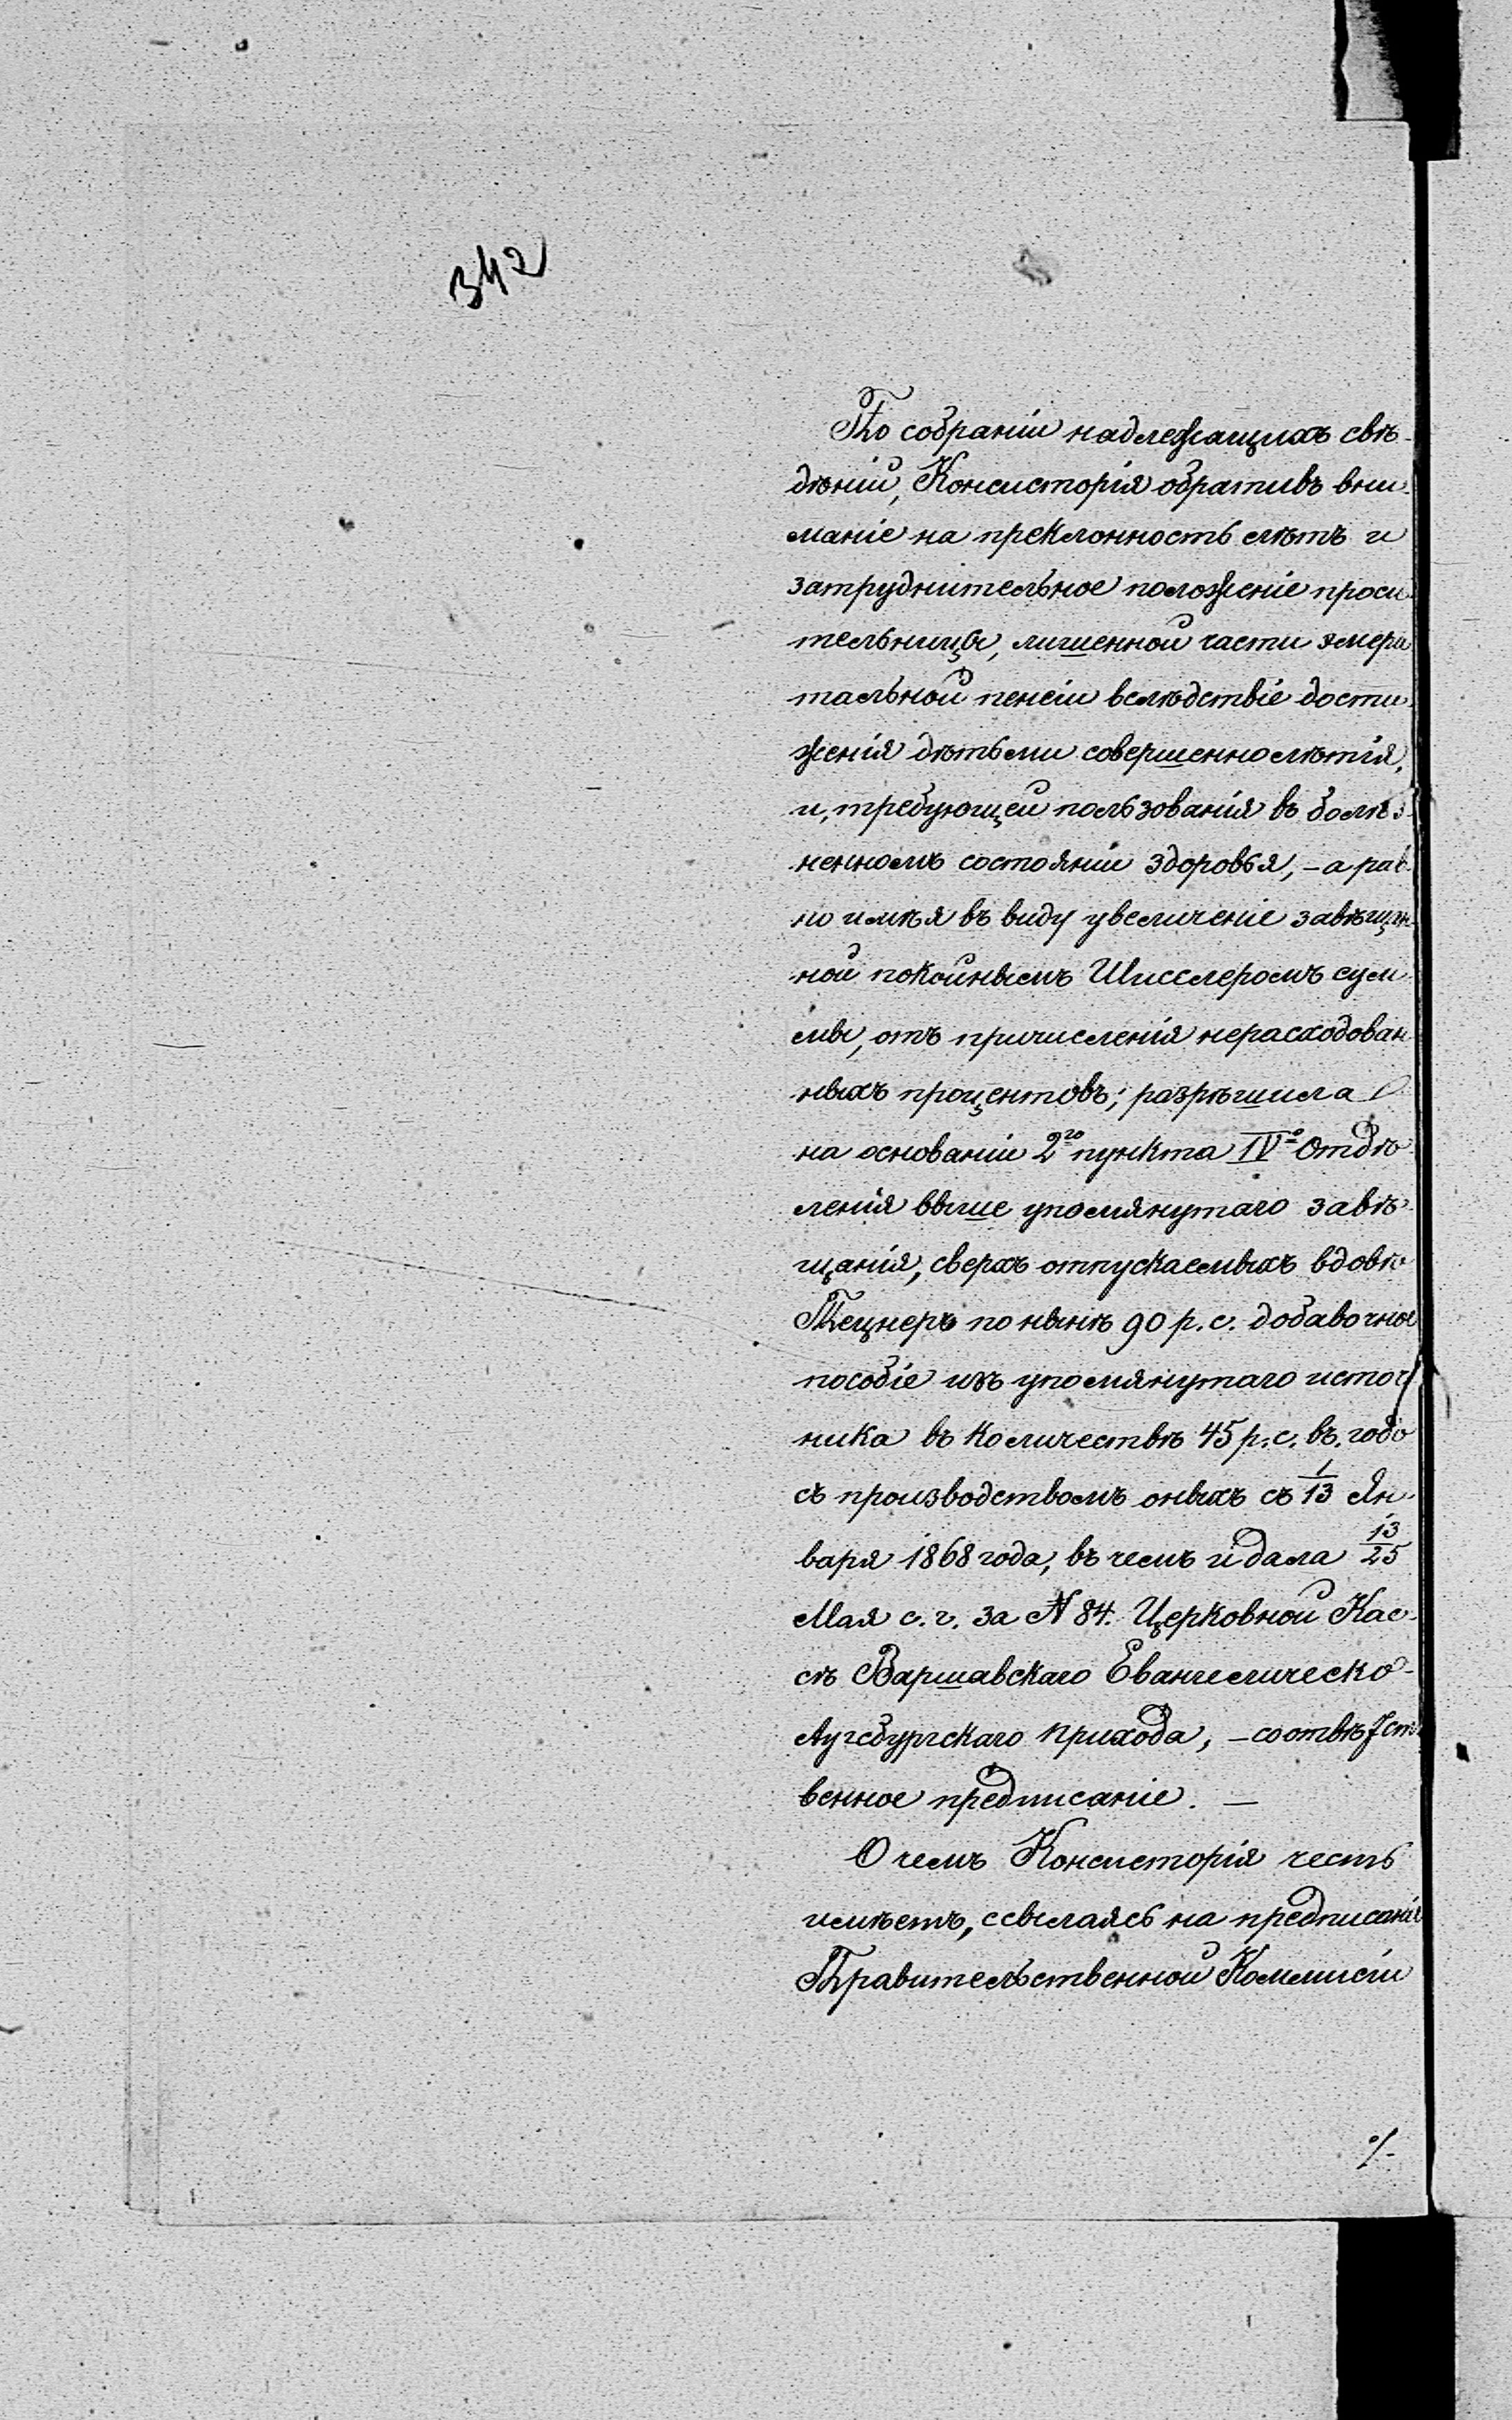 342
По собраніи надлежащихъ свѣ-
дѣній, Консисторія обративъ вни-
маніе на преклонность лѣтъ и
затруднительное положеніе проси-
тельницы, лишенной части эмери-
тальной пенсіи вслѣдствіе дости-
женія дѣтьми совершеннолѣтія,
и, требующей пользованія въ болѣз-
ненномъ состояніи здоровья, - а рав-
но имѣя въ виду увеличеніе завѣщан-
ной покойнымъ Шисслеромъ сум-
мы, отъ причисленія нерасходован-
ныхъ процентовъ; разрѣшила
на основаніи 2го пункта IVо Отдѣ-
ленія выше упомянутаго завѣ-
щанія, сверхъ отпускаемыхъ вдовѣ
Тецнеръ по нынѣ 90 р. с. добавочное
пособіе изъ упомянутаго источ-
ника въ количествѣ 45 р. с. въ годъ
съ производствомъ оныхъ съ 1/13 Ян-
варя 1868 года, въ чемъ и дала 13/25
Мая с. г. за N 84. Церковной Кас-
сѣ Варшавскаго Евангелическо-
Аугсбургскаго прихода, - соотвѣтст-
венное предписаніе. —
О чемъ Консисторія честь
имѣетъ, ссылаясь на предписаніе
Правительственной Коммисіи
%